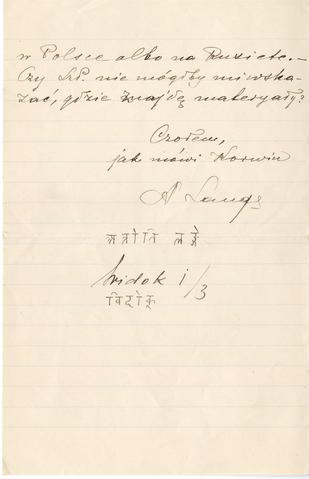 w Polsce albo na Rusi etc. –
Czy Sz. P. nie mógłby mi wska-
zać, gdzie znajdę materyały?
Czołem,
jak mówi Korwin
A Lange
अन्तोनि लङ्गे
Widok 1/3
विदोक्